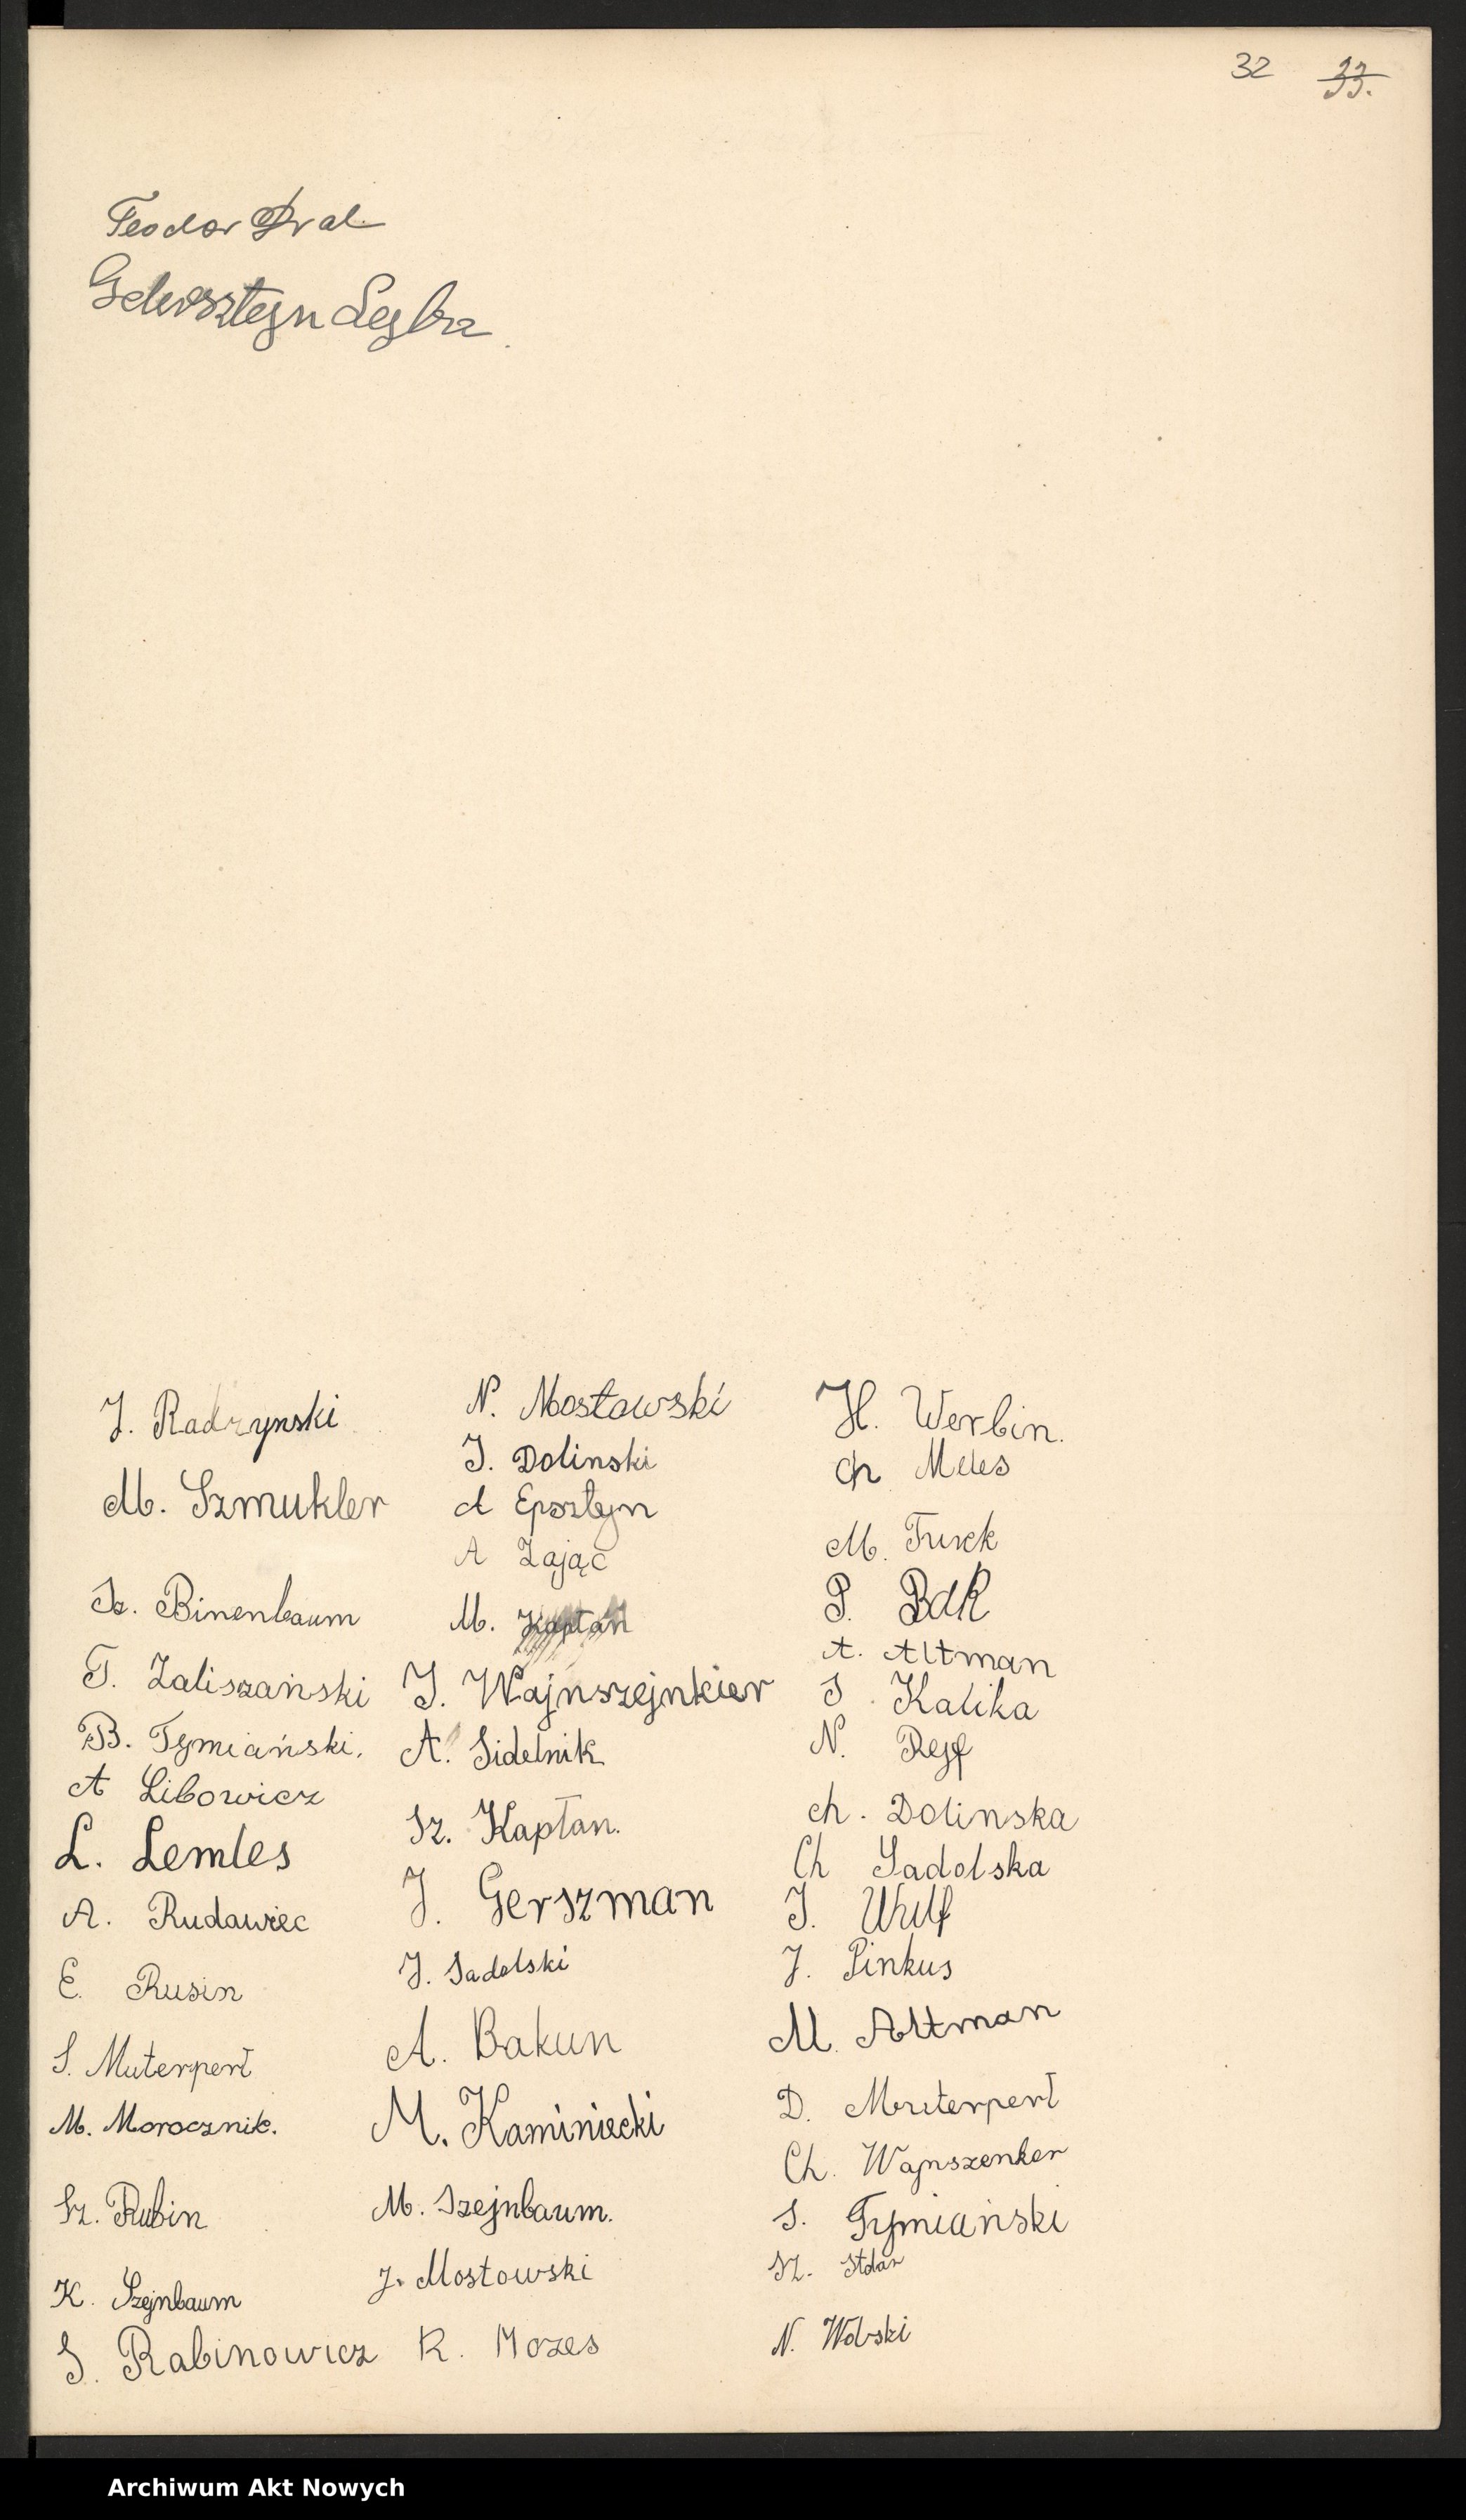 32 33.
Teodor Dral
Gelersztejn Lejba
J. Radzynski
M. Szmukler
Sz. Binenbaum
T. Zaliszański
B. Tymiański.
A Libowicz
L. Lemles
A. Rudawiec
E. Rusin
S. Muterperł
M. Morocznik.
Sz. Rubin
K. Szejnbaum
S. Rabinowicz
N. Mostowski
J. Dolinski
A Epsztejn
A Zając
M. Kapłan
J. Wajnszejnkier
A. Sidelnik
Sz. Kapłan.
J. Gerszman
J. Sadolski
A. Bakun
M. Kaminiecki
M. Szejnbaum.
J. Mostowski
R. Mozes
H. Werbin.
Ch Meles
M. Turek
P. Bak
A. Altman
S. Kalika
N. Rejf
Ch. Dolinska
Ch Sadolska
J. Wulf
J. Pinkus
M. Altman
D. Muterperł
Ch. Wajnszenker
S. Tymiański
Sz. Stolar
N. Wolski
Archiwum Akt Nowych